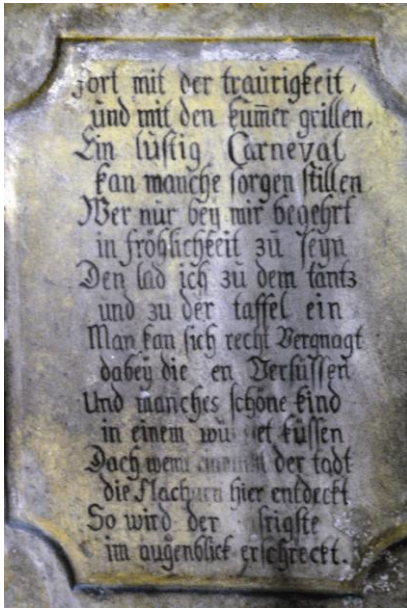 fort mit der traurigkeit,
und mit den kum̅er grillen,
Ein lustig Carneval
kan manche sorgen stillen
Wer nur bey mir begehrt
in fröhlichkeit zu seyn
Den lad ich zu dem tantz
und zu der taffel ein
Man kan sich recht Vergnagt
dabey die en Versüssen
Und manches schöne kind
in einem küssen
Doch wenn der todt
die hier entdeckt
So wird der
im augenblick erschreckt.